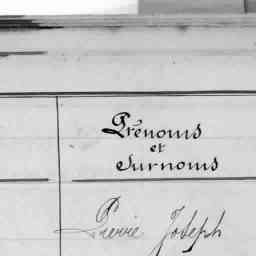 Prénoms
et
Surnoms
Pierre Joseph